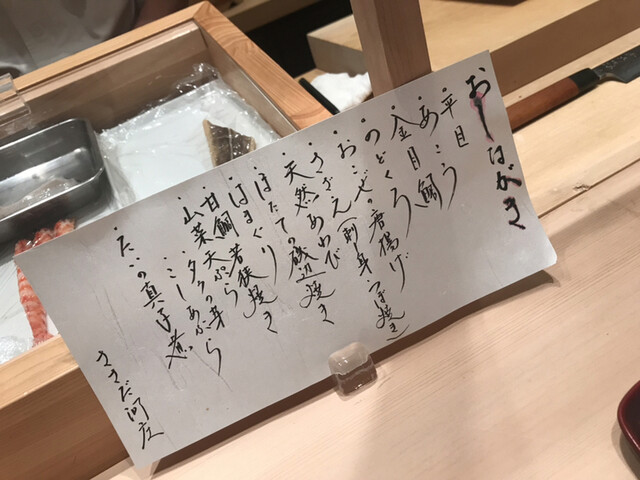 おしながき
・平目
・あこう
・金目鯛
・のどくろ
・おこぜの唐揚げ
・さざえ(刺身、つぼ焼き)
・天然あわび
・ほたての磯辺焼き
・はまぐり
・甘鯛若狭焼き
・山菜天ぷら
タラの芽
こしあぶら
・たこの真子煮